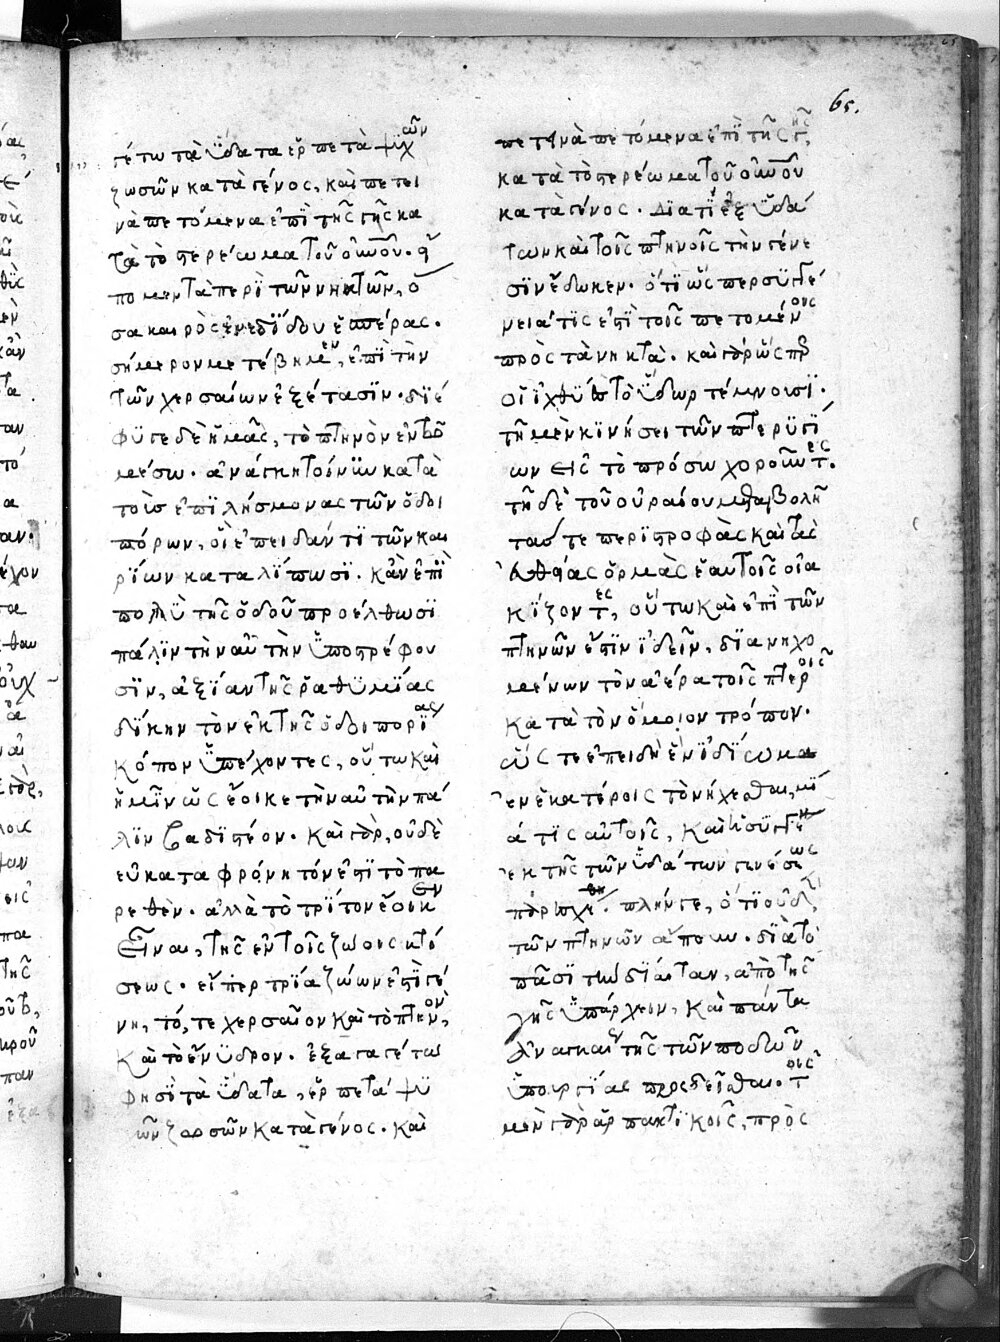 65.
γέτω τὰ ὕδατα ἑρπετὰ ψυχῶν
ζωσῶν κατὰ γένος, καὶ πετει
νὰ πετόμενα ἐπὶ τῆς γῆς κα
τὰ τὸ στερέωμα τοῦ οὐνοῦ. εἴ
πομεν τὰ περὶ τῶν νηκτῶν, ὅ
σα καιρὸς ἐνεδίδου ἑσπέρας.
σήμερον μετέβημεν, ἐπὶ τὴν
τῶν χερσαίων ἐξέτασιν. διέ
φυγε δὲ ἡμᾶς, τὸ πτηνὸν ἐν τῶ
μέσω. ἀνάγκη τοίνυν κατὰ
τοὺσ ἐπιλήσμονας τῶν ὁδοι
πόρων, οἳ ἐπειδάν τι τῶν και
ρίων καταλίπωσι. κἂν ἐπὶ
πολὺ τῆς ὁδοῦ προέλθωσι
πάλιν τὴν αὐτὴν ὑποστρέφου
σιν, ἀξίαν τῆς ῥαθυμίας
δίκην τὸν ἐκ τῆς ὁδοιπορίας
κόπον ὑπέχοντες, οὕτω καὶ
ἡμῖν ὡς ἔοικε τὴν αὐτὴν πά
λιν βαδιστέον. καὶ γὰρ, οὐδὲ
εὐκαταφρόνητόν ἐστι τὸ πα
ρεθὲν. ἀλλὰ τὸ τρίτον ἔοικεν
εἶναι, τῆς ἐν τοῖς ζώοις κτί
σεως. εἴπερ τρία ζώων ἐστὶ γέ
νη, τό, τε χερσαῖον καὶ τὸ πτηνὸν,
καὶ τὸ ἔνυδρον. ἐξαγαγέτω
φησὶ τὰ ὕδατα, ἑρπετὰ ψυ
χῶν ζωσῶν κατὰ γένος. καὶ
πετεινὰ πετόμενα ἐπὶ τῆς γῆς,
κατὰ τὸ στερέωμα τοῦ οὐνοῦ
κατὰ γένος. διατί ἐξ ὑδά
των καὶ τοῖς πτηνοῖς τὴν γένε
σιν ἔδωκεν. ὅτι ὥσπερ συγγέ
νειά τίς ἐστι τοῖς πετομένοις
πρὸς τὰ νηκτὰ. καὶ γὰρ ὥσπερ
οἱ ἰχθῦς τὸ ὕδωρ τέμνουσι.
τῆ μὲν κινήσει τῶν πτερυγί
ων εἰς τὸ πρόσω χοροῦντες.
τῆ δὲ τοῦ οὐραίου μεταβολῆ
τάς τε περιστροφὰς καὶ τὰς
εὐθείας ὁρμὰς ἑαυτοῖς οἰα
κίζοντες, οὕτω καὶ ἐπὶ τῶν
πτηνῶν ἔστιν ἰδεῖν, διανηχο
μένων τὸν ἀέρα τοῖς πτεροῖς
κατὰ τὸν ὅμοιον τρόπον.
ὥς τε ἐπειδὴ ἓν ἰδίωμα
ἐν ἑκατέροις τὸ νήχεσθαι, μί
α τις αὐτοῖς, καὶ ἡ συγγένεια
ἐκ τῆς τῶν ὑδάτων γενέσεως
παρεσχέθη. πλήν γε, ὅτι οὐδὲν
τῶν πτηνῶν ἄπουν. διὰ τὸ
πᾶσι τὴν δίαιταν, ἀπὸ τῆς
γῆς ὑπάρχειν, καὶ πάντα
ἀναγκαίως τῆς τῶν ποδῶν
ὑπουργίας προσδεῖσθαι. τοῖς
μὲν γὰρ ἁρπακτικοῖς, πρὸς